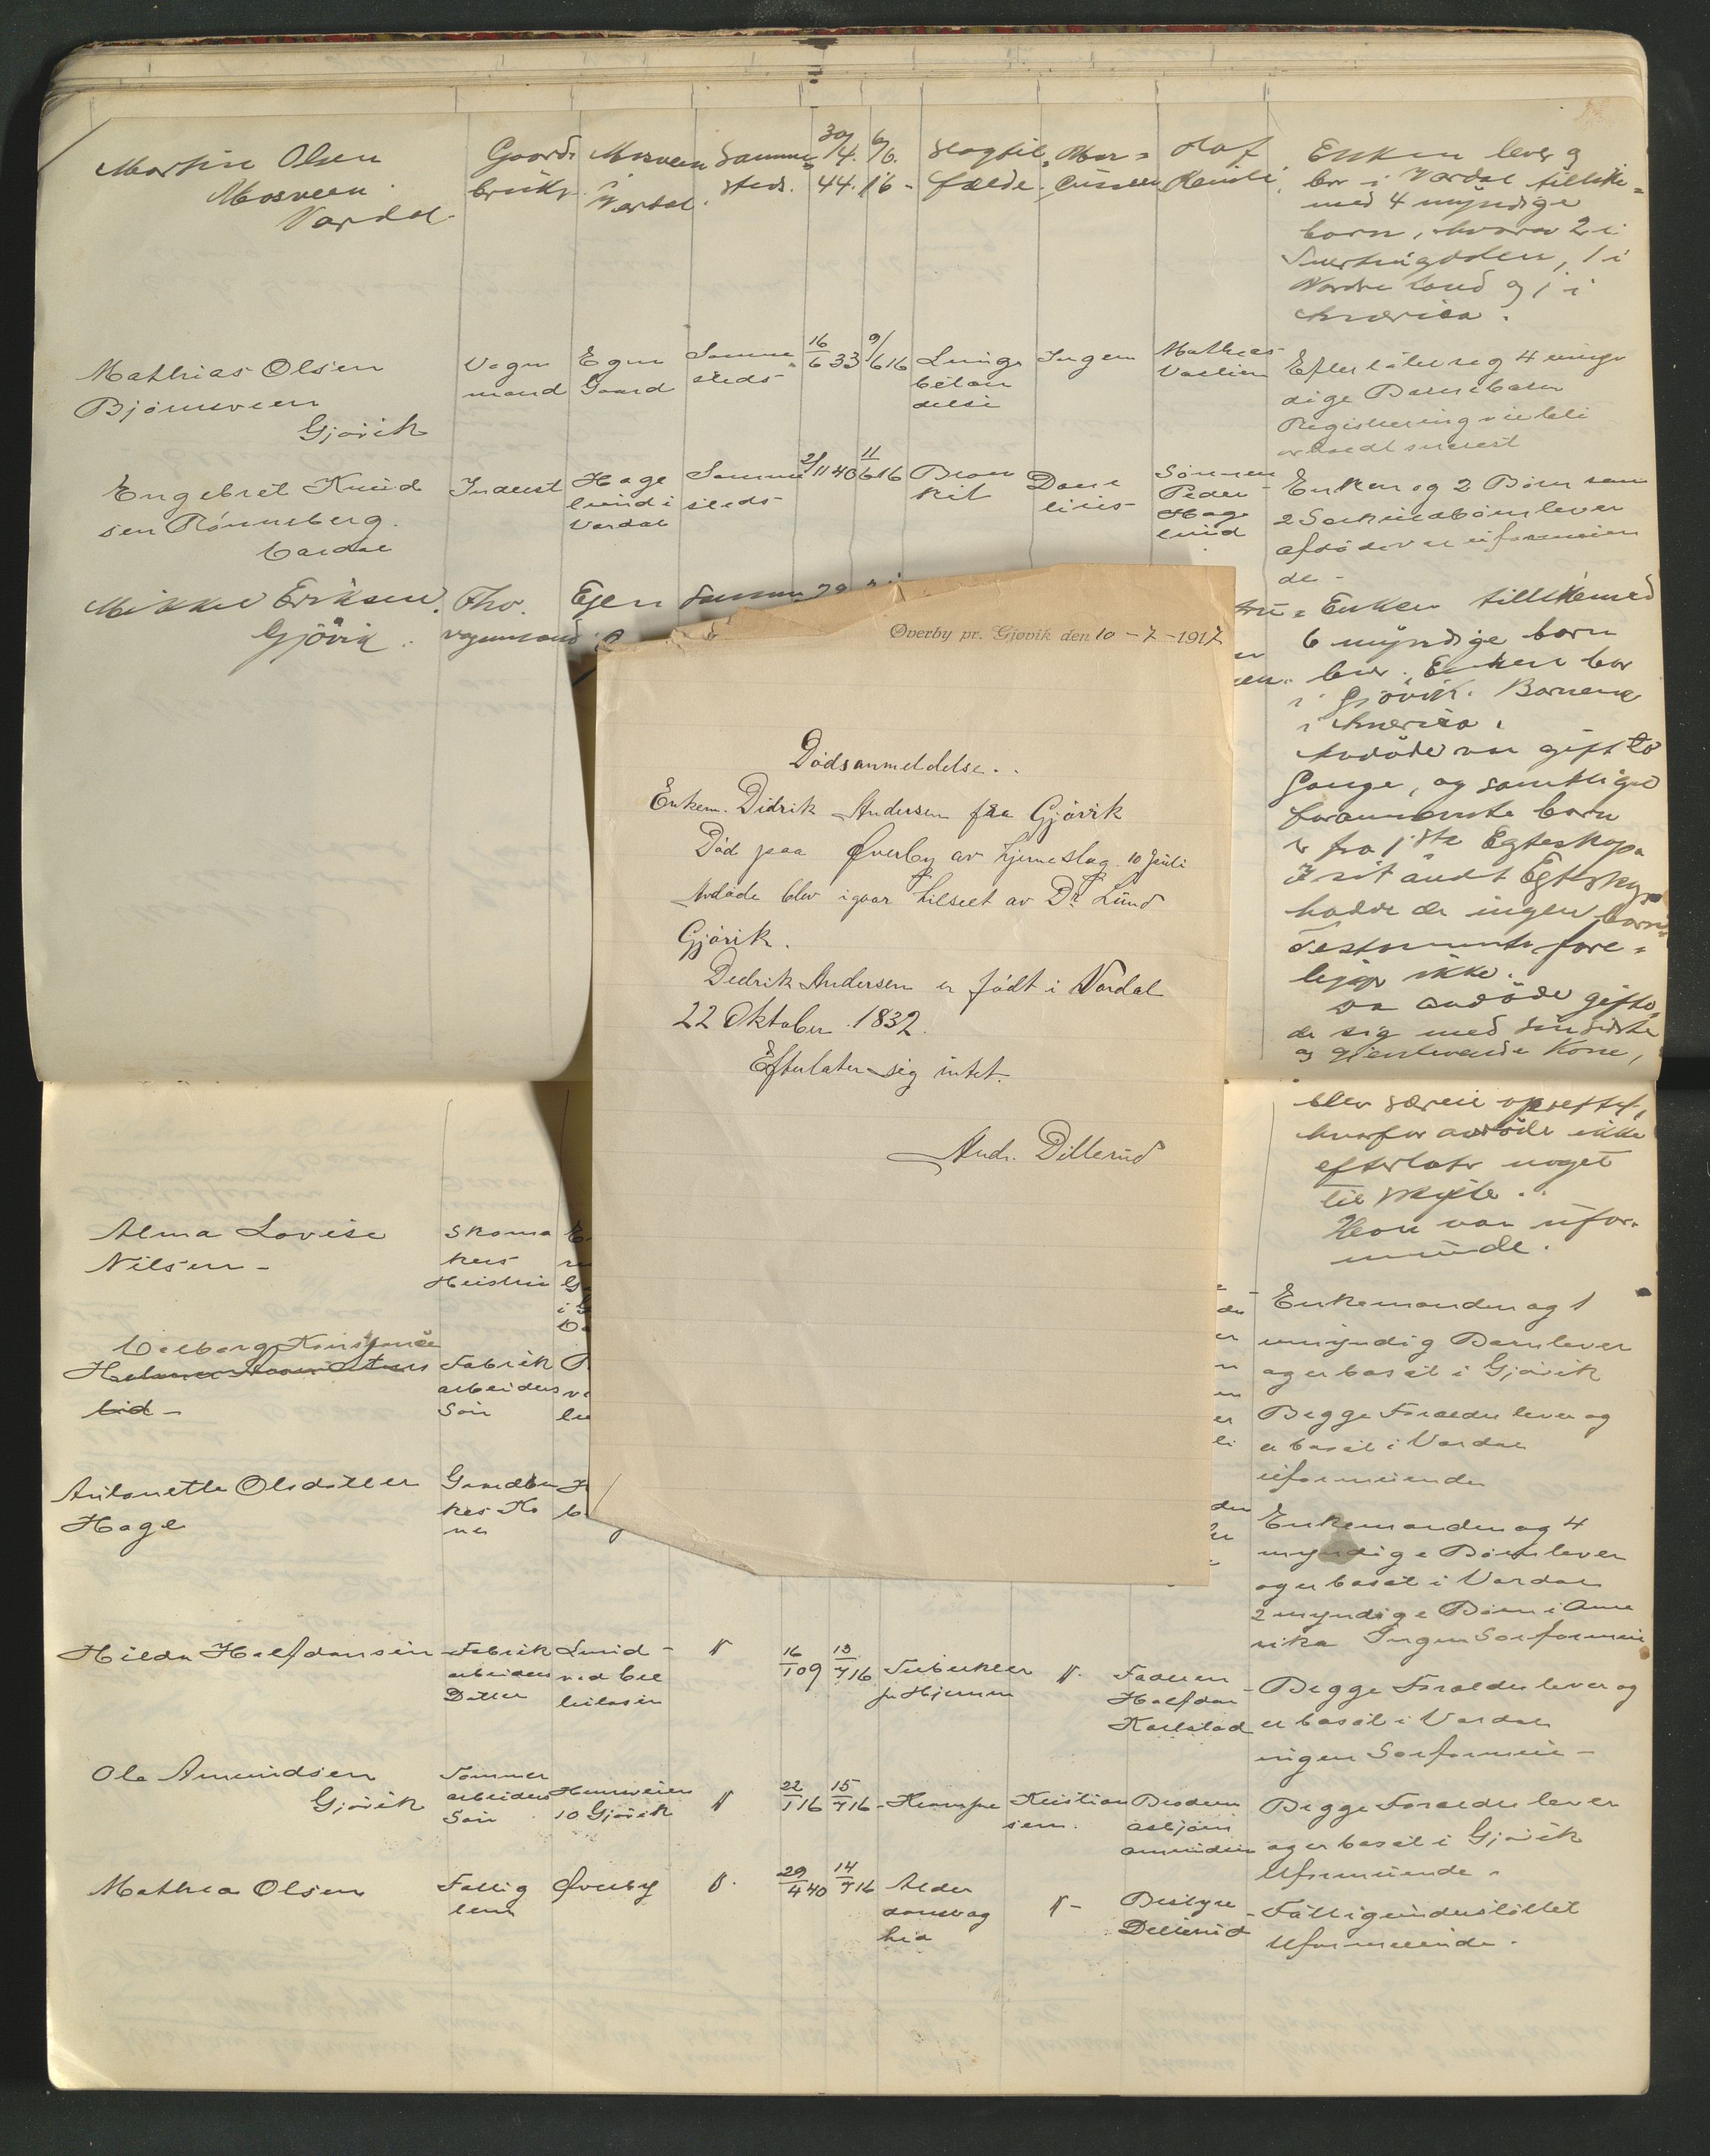 Martin Olsen
Mosveen
Vardal
Gaards
bruks.
Mosveen
i
Vardal.
Samme
steds.
30/4. 44.
6/6. 16
Slagtil=
fælde.
Olaf
Enken lever og
bor i Vardal tillike=
med 4 myndige
barn, hvorav 2 i
1 i
Nordre Land og 1 i
Amerika.
Mathias Olsen
Bjørnsveen
Gjøvik
Vogn
mand
Egen
Gaard
Samme
steds
16/6 33
9/6 16
Lunge
betæn
delse
Ingen
Mathias
Efterlater sig 4 myn
dige Barnebarn
Registrering vil bli
Engebret Knud
sen Rønnsberg.
Vardal
Inderst
Hage
lund i
Vardal
Samme
steds
2/11 40
11/6 16
Bron
kit
Sønnen
Peder
Hage
lund
Enken og 2 Børn samt
2 Særkuldbørn lever
afdøde var uformuen
de -
Mikkel Eriksen.
Gjövik.
Fhv.
vognmand
Egen
Samme
Enken tillikemed
6 myndige barn
lever. Enken bor
i Gjövik. Barnene
i Amerika.
Avdöde var gift to
Gange, og samtlige
forannevnte barn
er fra 1ste Egteskap.
I sit andet Egteskap
hadde de ingen barn
Testamente fore=
ligger ikke.
Da avdöde gifte=
de sig med sin sidste
og gjenlevende Kone,
blev særeie opsettet,
hvorfor avdöde ikke
efterlater noget
til skifte.
Han var ufor=
muende.
Øverby pr. Gjøvik den 10-7-1917
Dødsanmeldelse.
Enkem. Didrik Andersen fra Gjøvik
Død paa Øverby av hjerneslag 10 Juli
Avdøde blev igaar tilseet av Dr. Lund
Gjøvik.
Dedrik Andersen er født i Vardal
22 Oktober 1832.
Efterlater sig intet.
Andr. Dillerud
Alma Lovise
Nilsen -
Skoma
kers
Hustru
Enkemanden og 1
umyndig Barn lever
og er bosat i Gjøvik
Fabrik
arbeiders
Søn
Begge Forældre lever og
er bosat i Vardal
uformuende
Antonette Olsdatter
Hage
Gaardbru
kes Ko
ne
Enkemanden og 4
myndige Børn lever
og er bosat i Vardal
2 myndige Børn i Ame
rika Ingen Særformue
Hilda Halfdansen
Fabrik
arbeiders
Datter
Lund
ved
16/1 09
13/7 16
Tuberkler
paa Hjernen
Faderen
Halfdan
Karlstad
Begge Forældre lever og
er bosat i Vardal
ingen Særformue -
Ole Amundsen
Gjøvik
Tømmer
arbeiders
Søn
Hunsveien
10 Gjøvik
22/1 16
15/7 16
Krampe
Kristian
sen.
Broderen
Asbjørn
Amundsen
Begge Forældre lever
og er bosat i Gjøvik
Uformuende.
Mathea Olsen
Fattig
lem
Øverby
29/4 40
14/7 16
Alder
domsvag
hed
Bestyrer
Dillerud
Fattigunderstøttet
Uformuende.